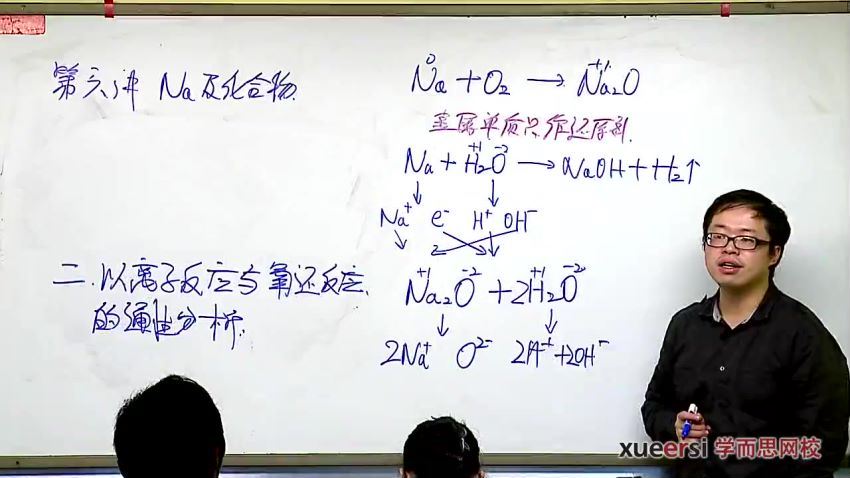 第六讲 Na及化合物
二.以离子反应与氧还反应
的通性分析.
Na + O₂ → Na₂O
0 +1
金属单质只作还原剂.
+1 -2
Na + H₂O → NaOH + H₂↑
Na⁺ e⁻ H⁺ OH⁻
+1 -2 +1 -2
Na₂O + 2H₂O
2Na⁺ O²⁻ 2H⁺+2OH⁻
xueersi 学而思网校